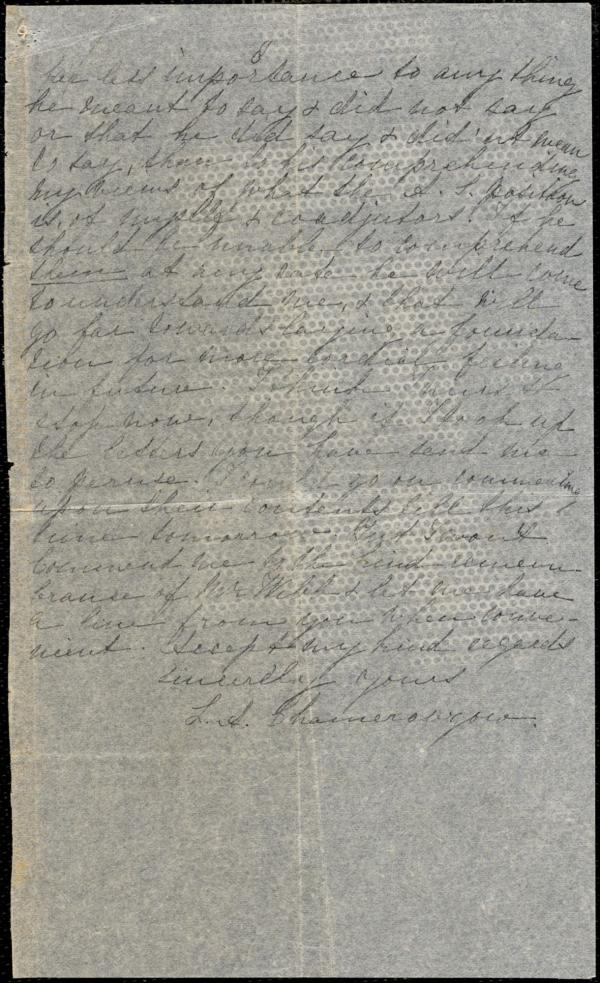 8
far less importance to any thing
he meant to say & did not say
or that he did say & did'nt mean
to say, than to his comprehending
my views of what the A. S. position
is, of myself & coadjutors. If he
should be unable to comprehend
them at any rate he will come
to understand me, & that will
go far towards laying a founda-
tion for more cordial feeling
in future. I think I must
stop now, though if I took up
the letters you have sent me
to peruse. I could go on commenting
upon their contents till this
time tomorrow. But I won't
Commend me to the kind remem-
brance of Mr Webb & let me have
a line from you when conve-
nient. Accept my kind regards
Sincerely yours
L. A. Chamerovzow.